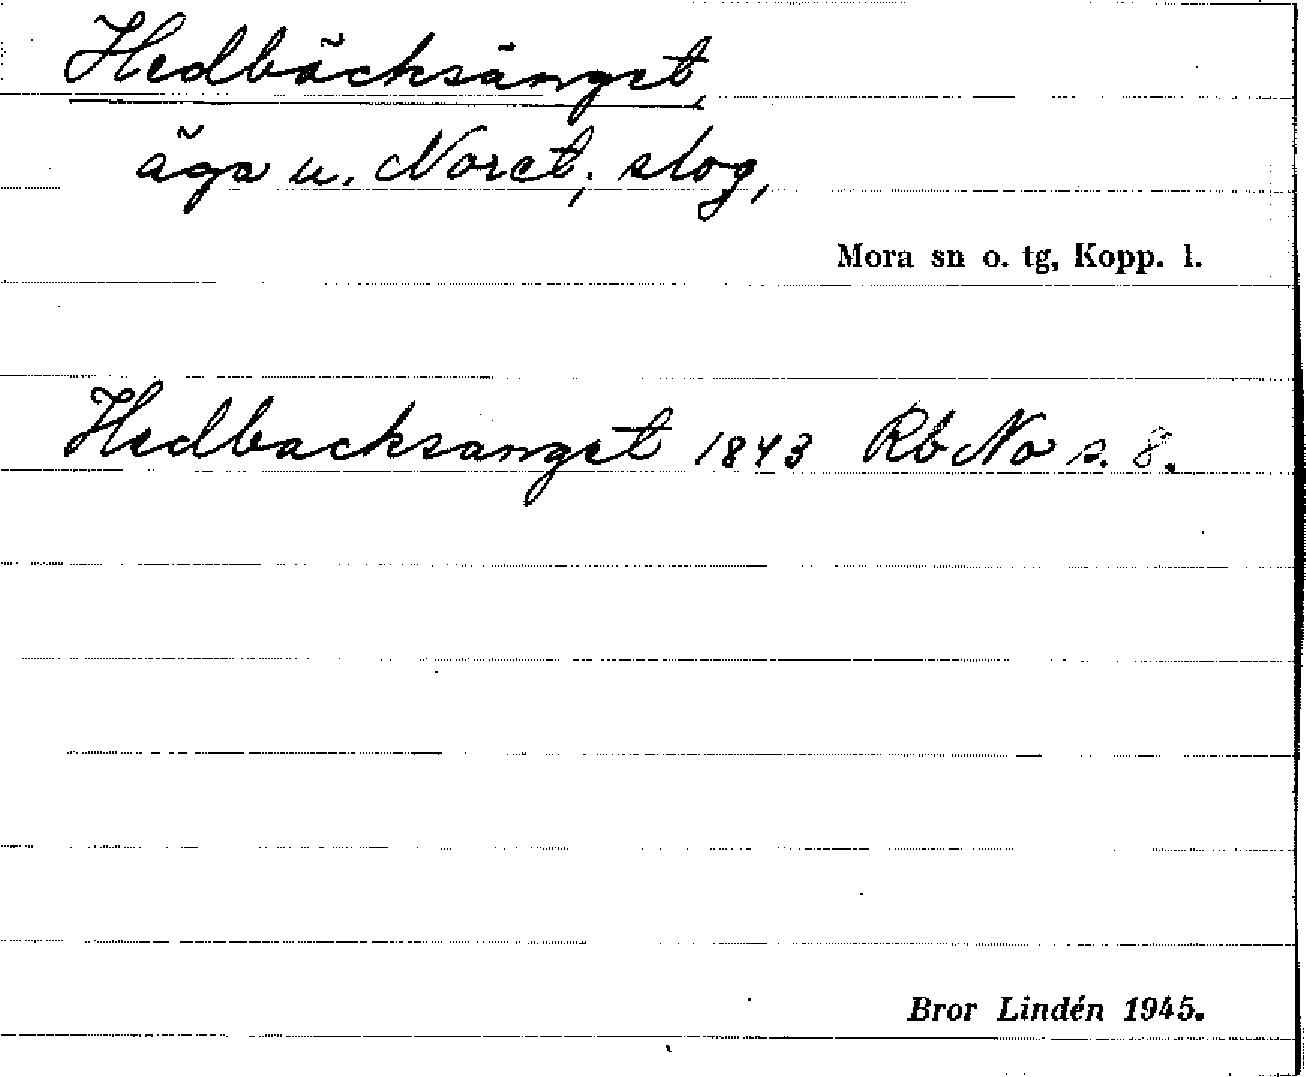 Hedbäcksänget,
äga u. Noret; slog,
Mora sn o. tg, Kopp. l.
Hedbacksanget 1843 Rb No s. 8.
Bror Lindén 1945.